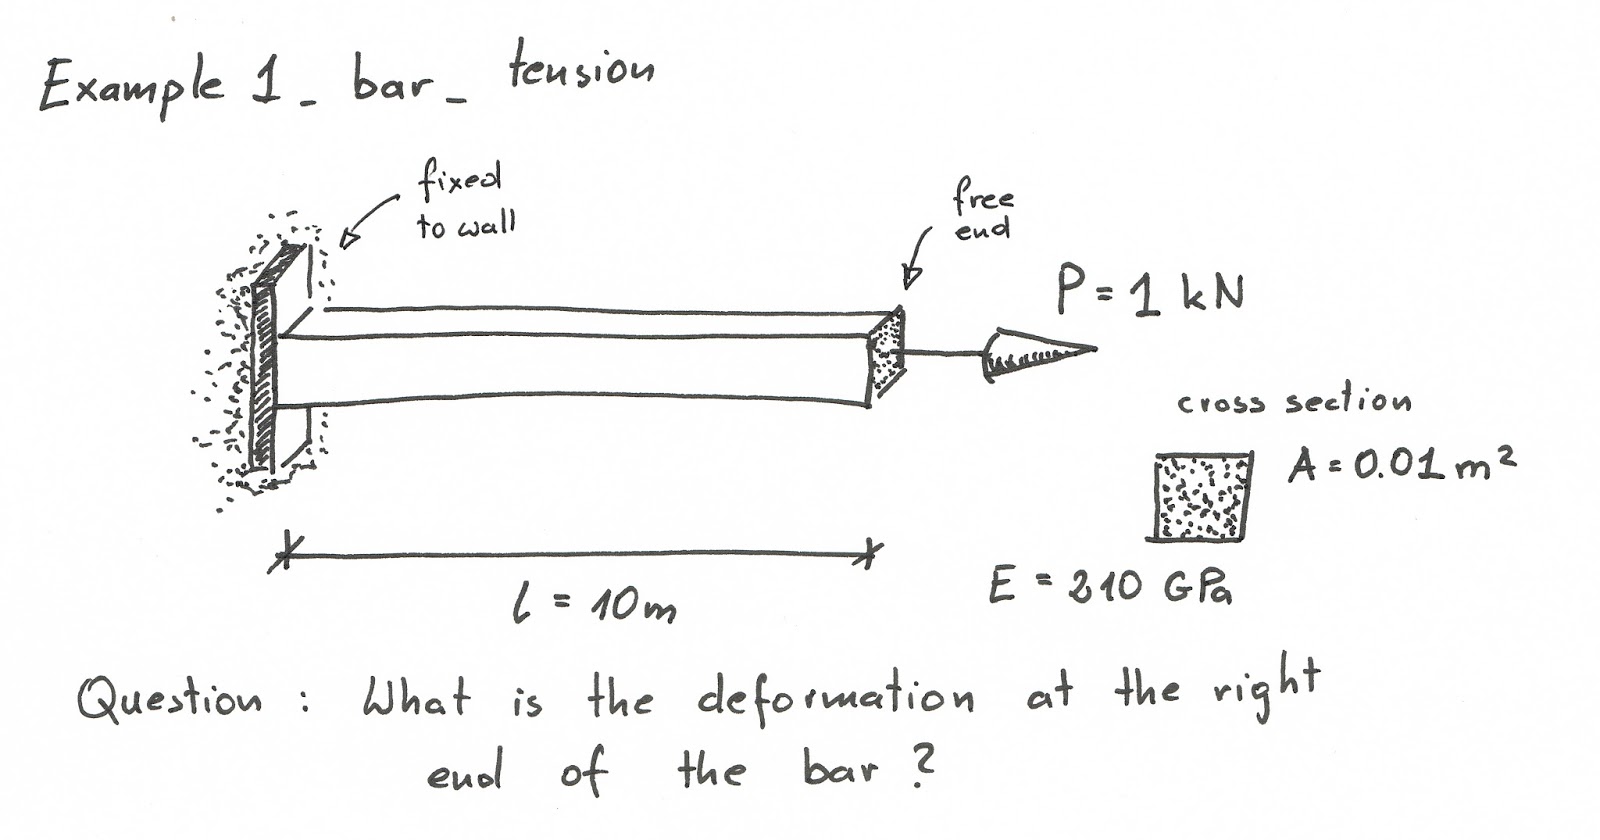 Example 1_ bar_ tension
fixed
to wall
free
end
P = 1 kN
cross section
A = 0.01 m²
l = 10m
E = 210 GPa
Question : What is the deformation at the right
end of the bar ?